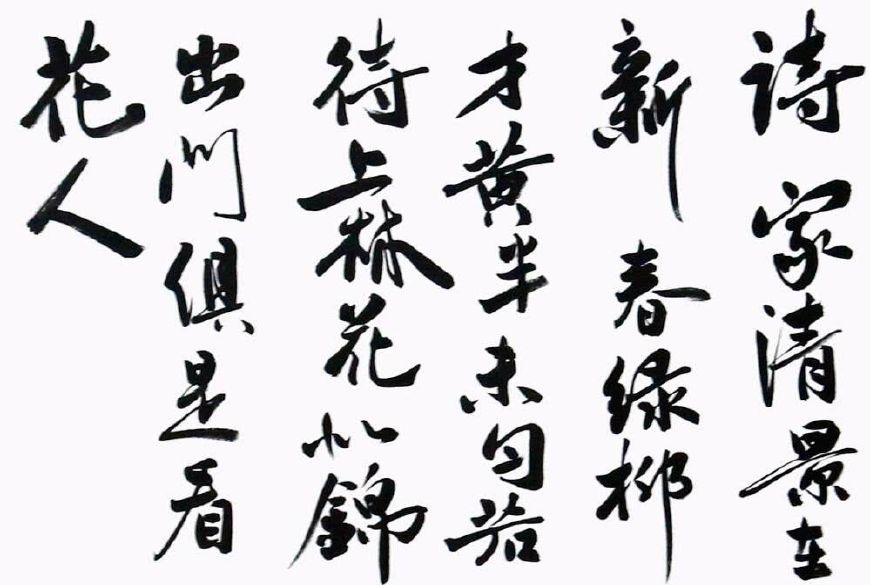 詩家清景在
新春绿柳
才黄半未匀若
待上林花似錦
出门俱是看
花人